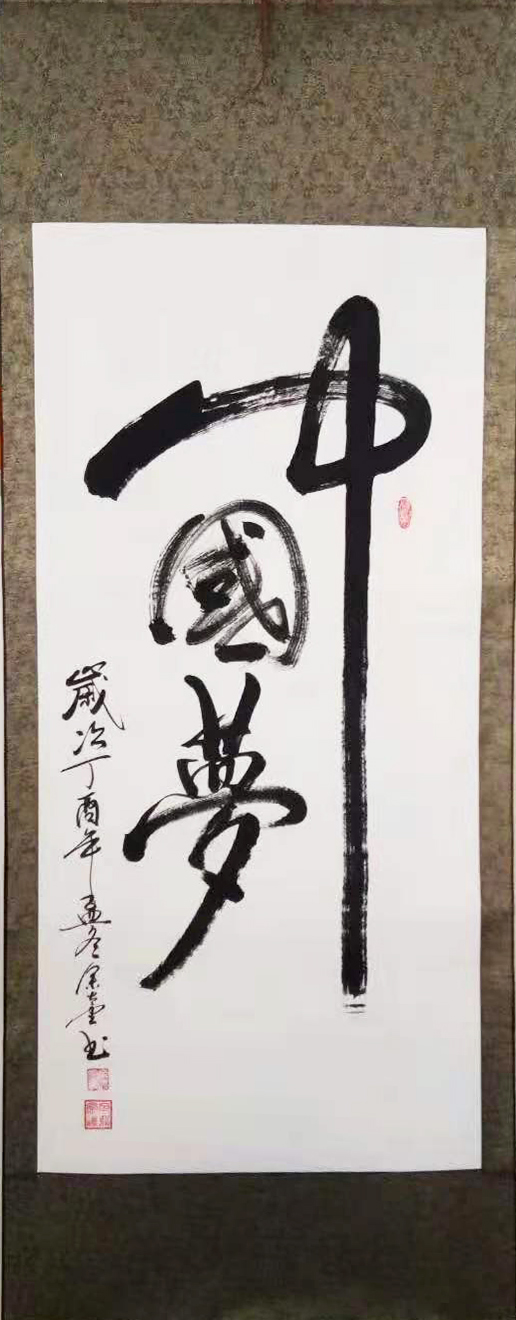 中國夢
歲次丁酉年孟冬
書